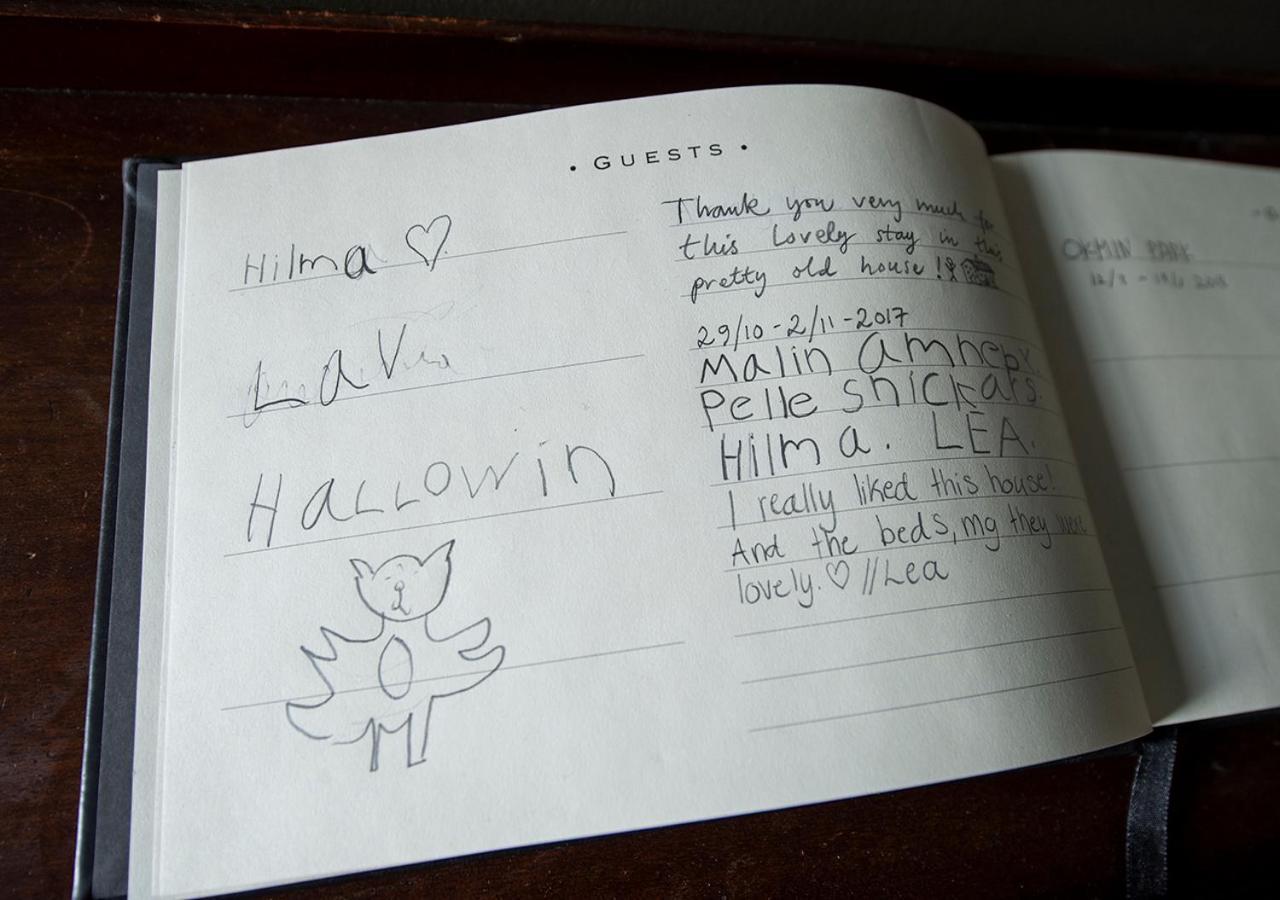 • GUESTS •
Hilma
LaV
HaLLOWin
Thank you very much for
this lovely stay in this
pretty old house!
29/10-2/11-2017
Malin
Pelle Snickars.
Hilma. LEA.
I really liked this house!
And the beds, mg they were
lovely. ♡ //Lea
OKMIN PARK